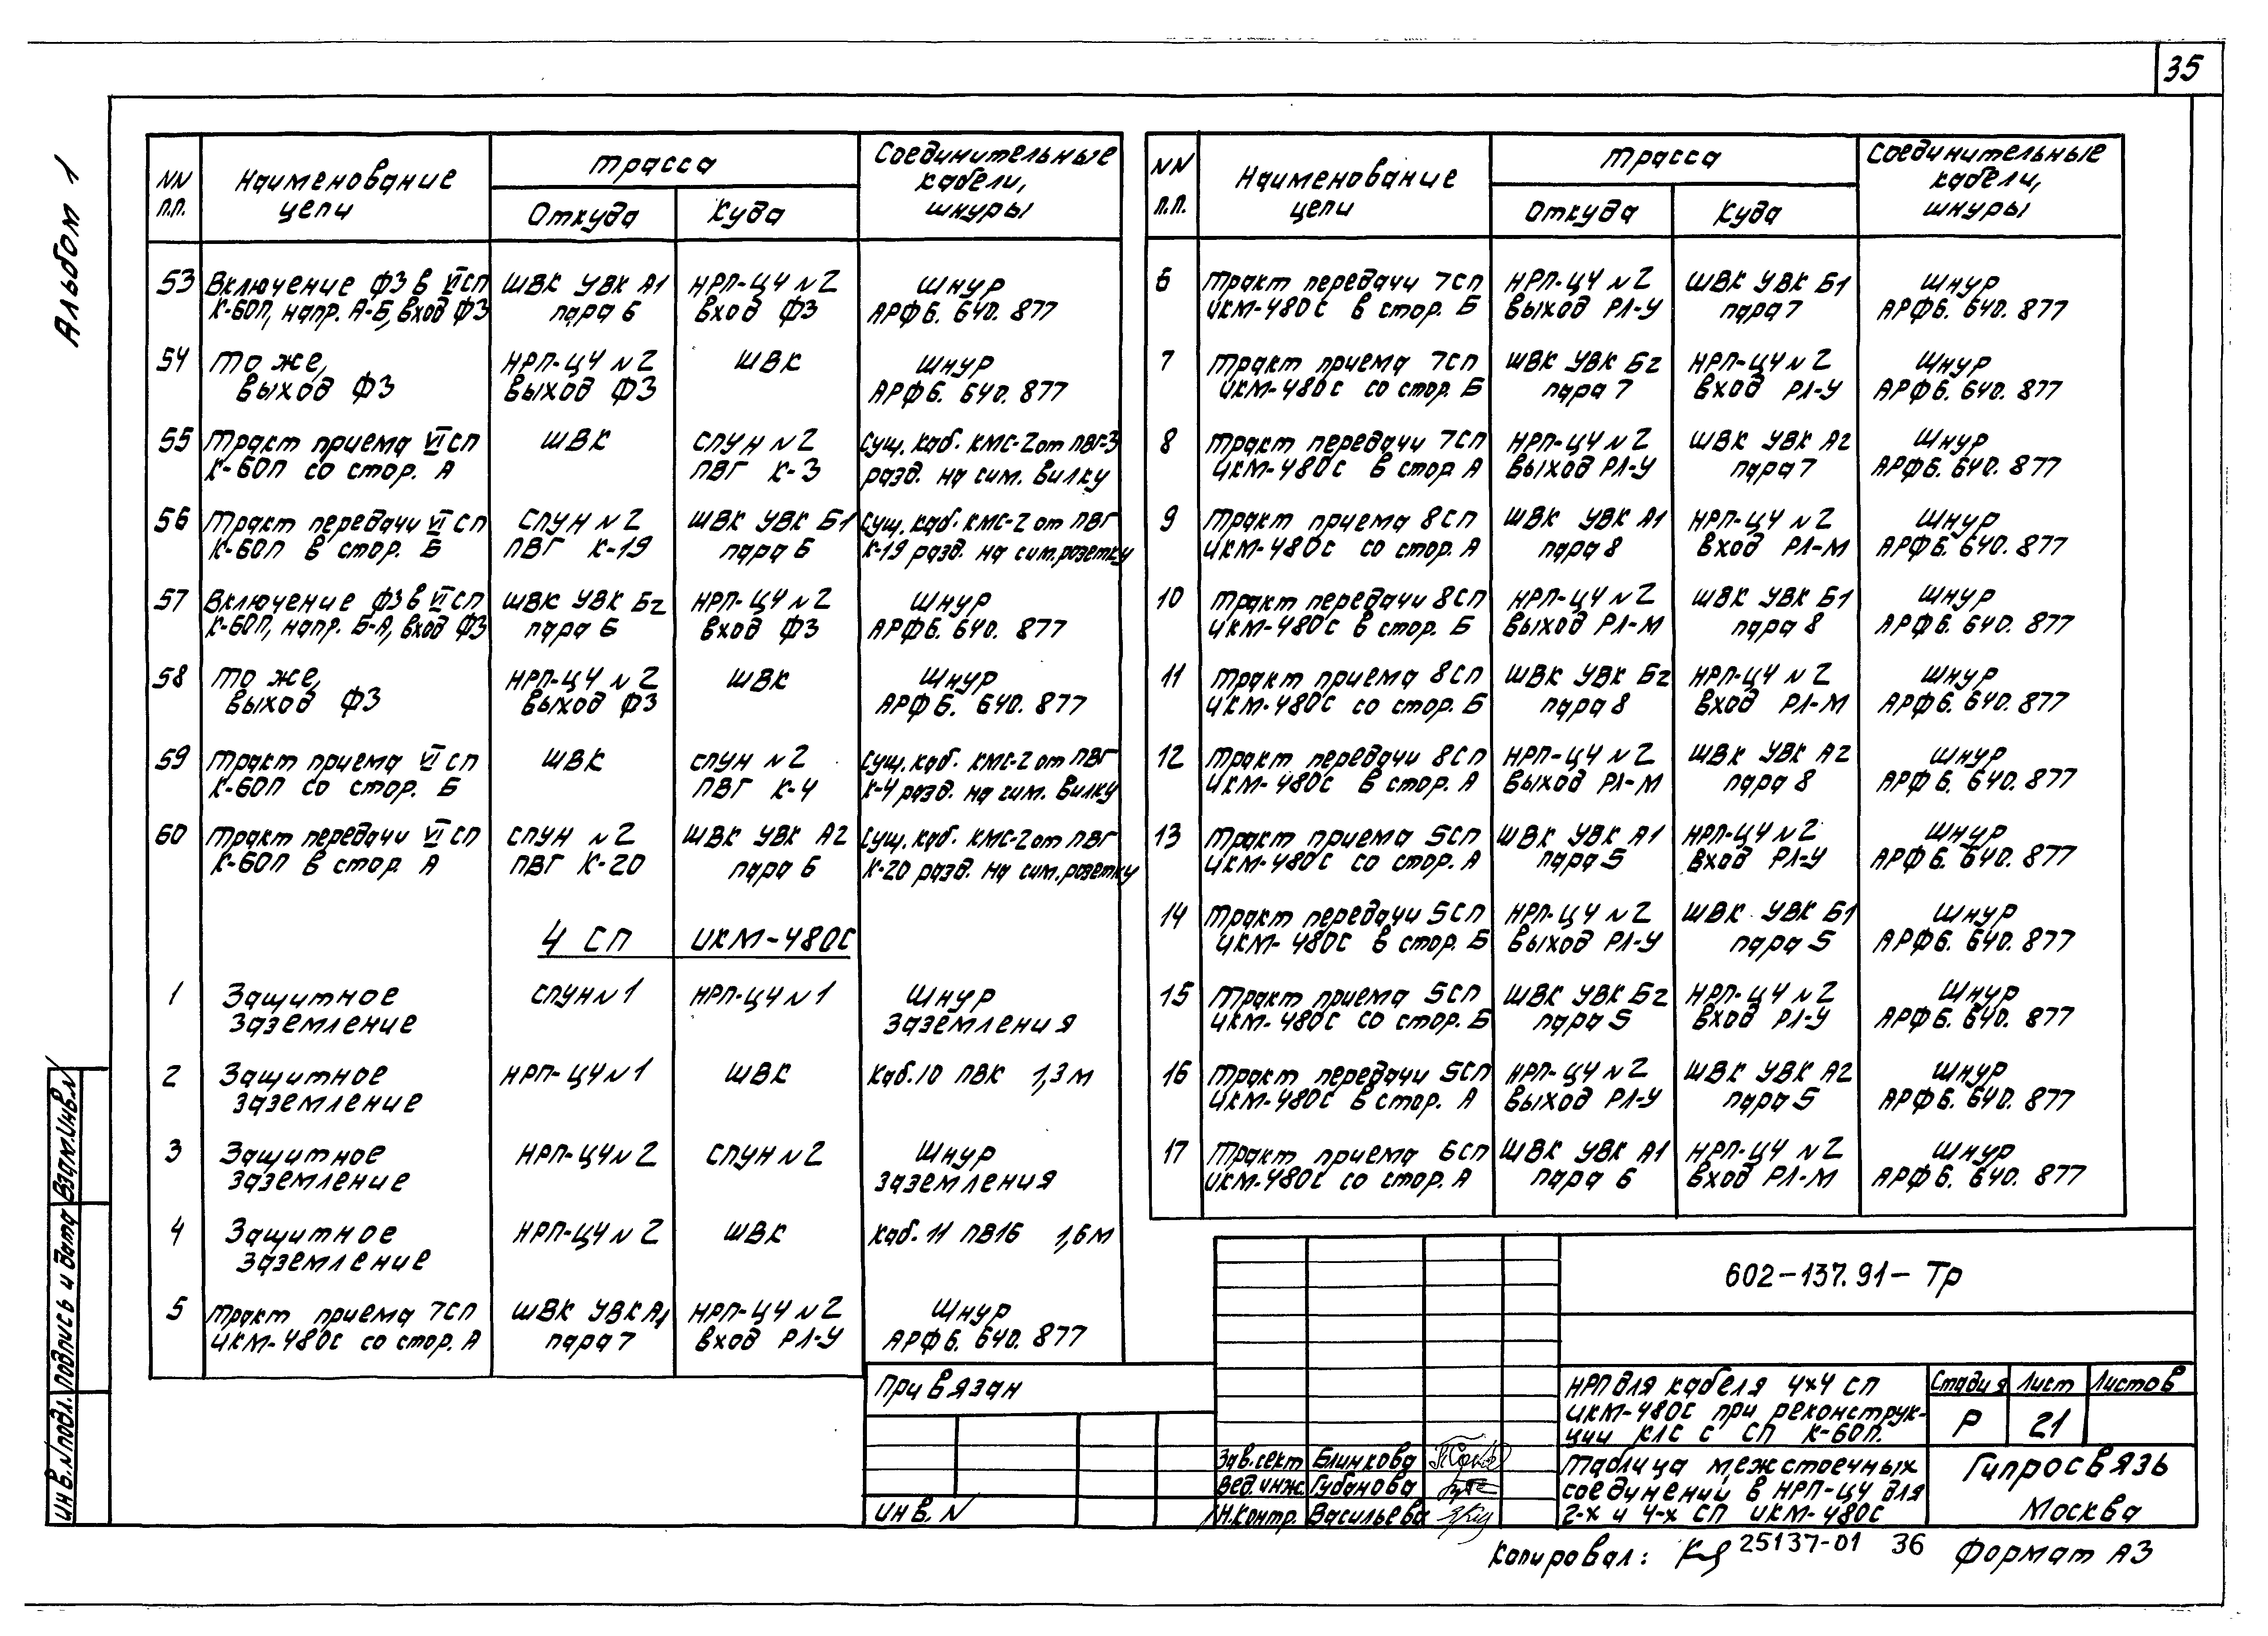 35
Альбом 1
NN п.п. Наименование цепи Трасса Соединительные кабели, шнуры
Откуда Куда
53 Включение ФЗ в VI сп ШВК УВК А1 НРП-Ц4 N2 Шнур
К-60П, напр. А-Б, вход ФЗ пара 6 вход ФЗ АРФ6. 640. 877
54 То же, НРП-Ц4 N2 ШВК Шнур
выход ФЗ выход ФЗ АРФ6. 640. 877
55 Тракт приема VI сп ШВК СПУН N2 Сущ. каб. КМС-2 от ПВГ-3
К-60П со стор. А ПВГ К-3 разд. на сим. вилку
56 Тракт передачи VI сп СПУН N2 ШВК УВК Б1 Сущ. каб. КМС-2 от ПВГ
К-60П в стор. Б ПВГ К-19 пара 6 К-19 разд. на сим. розетку
57 Включение ФЗ в VI сп ШВК УВК Б2 НРП-Ц4 N2 Шнур
К-60П, напр. Б-А, вход ФЗ пара 6 вход ФЗ АРФ6. 640. 877
58 То же, НРП-Ц4 N2 ШВК Шнур
выход ФЗ выход ФЗ АРФ6. 640. 877
59 Тракт приема VI сп ШВК СПУН N2 Сущ. каб. КМС-2 от ПВГ
К-60П со стор. Б ПВГ К-4 К-4 разд. на сим. вилку
60 Тракт передачи VI сп СПУН N2 ШВК УВК А2 Сущ. каб. КМС-2 от ПВГ
К-60П в стор. А ПВГ К-20 пара 6 К-20 разд. на сим. розетку
4 СП ИКМ-480С
1 Защитное СПУН N1 НРП-Ц4 N1 Шнур
заземление заземления
2 Защитное НРП-Ц4 N1 ШВК Каб. 10 ПВК 1,3 м
заземление
3 Защитное НРП-Ц4 N2 СПУН N2 Шнур
заземление заземления
4 Защитное НРП-Ц4 N2 ШВК Каб. 11 ПВ16 1,6 м
заземление
5 Тракт приема 7СП ШВК УВК А1 НРП-Ц4 N2 Шнур
ИКМ-480С со стор. А пара 7 вход РЛ-У АРФ6. 640. 877
NN п.п. Наименование цепи Трасса Соединительные кабели, шнуры
Откуда Куда
6 Тракт передачи 7СП НРП-Ц4 N2 ШВК УВК Б1 Шнур
ИКМ-480С в стор. Б выход РЛ-У пара 7 АРФ6. 640. 877
7 Тракт приема 7СП ШВК УВК Б2 НРП-Ц4 N2 Шнур
ИКМ-480С со стор. Б пара 7 вход РЛ-У АРФ6. 640. 877
8 Тракт передачи 7СП НРП-Ц4 N2 ШВК УВК А2 Шнур
ИКМ-480С в стор А выход РЛ-У пара 7 АРФ6. 640. 877
9 Тракт приема 8СП ШВК УВК А1 НРП-Ц4 N2 Шнур
ИКМ-480С со стор. А пара 8 вход РЛ-М АРФ6. 640. 877
10 Тракт передачи 8СП НРП-Ц4 N2 ШВК УВК Б1 Шнур
ИКМ-480С в стор. Б выход РЛ-М пара 8 АРФ6. 640. 877
11 Тракт приема 8СП ШВК УВК Б2 НРП-Ц4 N2 Шнур
ИКМ-480С со стор. Б пара 8 вход РЛ-М АРФ6. 640. 877
12 Тракт передачи 8СП НРП-Ц4 N2 ШВК УВК А2 Шнур
ИКМ-480С в стор. А выход РЛ-М пара 8 АРФ6. 640. 877
13 Тракт приема 5СП ШВК УВК А1 НРП-Ц4 N2 Шнур
ИКМ-480С со стор. А пара 5 вход РЛ-У АРФ6. 640. 877
14 Тракт передачи 5СП НРП-Ц4 N2 ШВК УВК Б1 Шнур
ИКМ-480С в стор. Б выход РЛ-У пара 5 АРФ6. 640. 877
15 Тракт приема 5СП ШВК УВК Б2 НРП-Ц4 N2 Шнур
ИКМ-480С со стор. Б пара 5 вход РЛ-У АРФ6. 640. 877
16 Тракт передачи 5СП НРП-Ц4 N2 ШВК УВК А2 Шнур
ИКМ-480С в стор. А выход РЛ-У пара 5 АРФ6. 640. 877
17 Тракт приема 6СП ШВК УВК А1 НРП-Ц4 N2 Шнур
ИКМ-480С со стор. А пара 6 вход РЛ-М АРФ6. 640. 877
602-137.91- Тр
Привязан
Инв. N
Зав.сект Блинкова
Вед.инж. Губанова
Н.контр. Васильева
НРП для кабеля 4х4 СП
ИКМ-480С при реконструк-
ции КЛС с СП К-60П.
Таблица межстоечных
соединений в НРП-Ц4 для
2-х и 4-х СП ИКМ-480С
Стадия Лист Листов
Р 21
Гипросвязь
Москва
Инв.N подл. Подпись и дата Взам.инв.N
Копировал: 25137-01 36 Формат А3